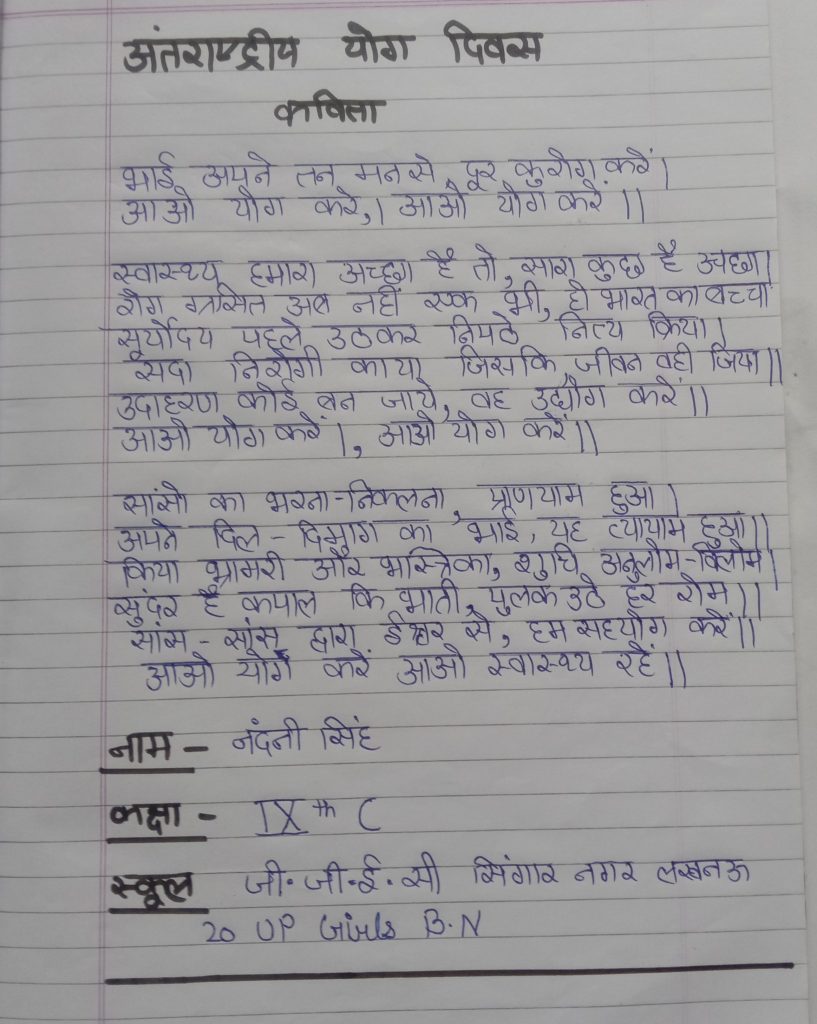 अंतराष्ट्रीय योग दिवस
कविता
भाई अपने तन मन से, दूर कुरोग करें।
आओ योग करें,। आओ योग करें ।।
स्वास्थ्य हमारा अच्छा है तो, सारा कुछ है अच्छा।
रोग ग्रसित अब नहीं एक भी, हो भारत का बच्चा
सूर्योदय पहले उठकर निपटे नित्य क्रिया।
सदा निरोगी काया जिसकि, जीवन वही जिया।।
उदाहरण कोई बन जाये, वह उद्योग करें।।
आओ योग करें।, आओ योग करें।।
सांसो का भरना-निकलना, प्राणयाम हुआ।
अपने दिल-दिमाग का भाई, यह व्यायाम हुआ।।
किया भ्रामरी और भास्त्रिका, शुधि अनुलोम-विलोम।
सुंदर है कपाल कि भाती, पुलक उठे हर रोम।।
सांस-सांस द्वारा ईश्वर से, हम सहयोग करें।।
आओ योग करें आओ स्वास्थ्य रहें।।
नाम - नंदनी सिंह
कक्षा - IXth C
स्कूल जी.जी.ई.सी सिंगार नगर लखनऊ
20 UP Girls B.N